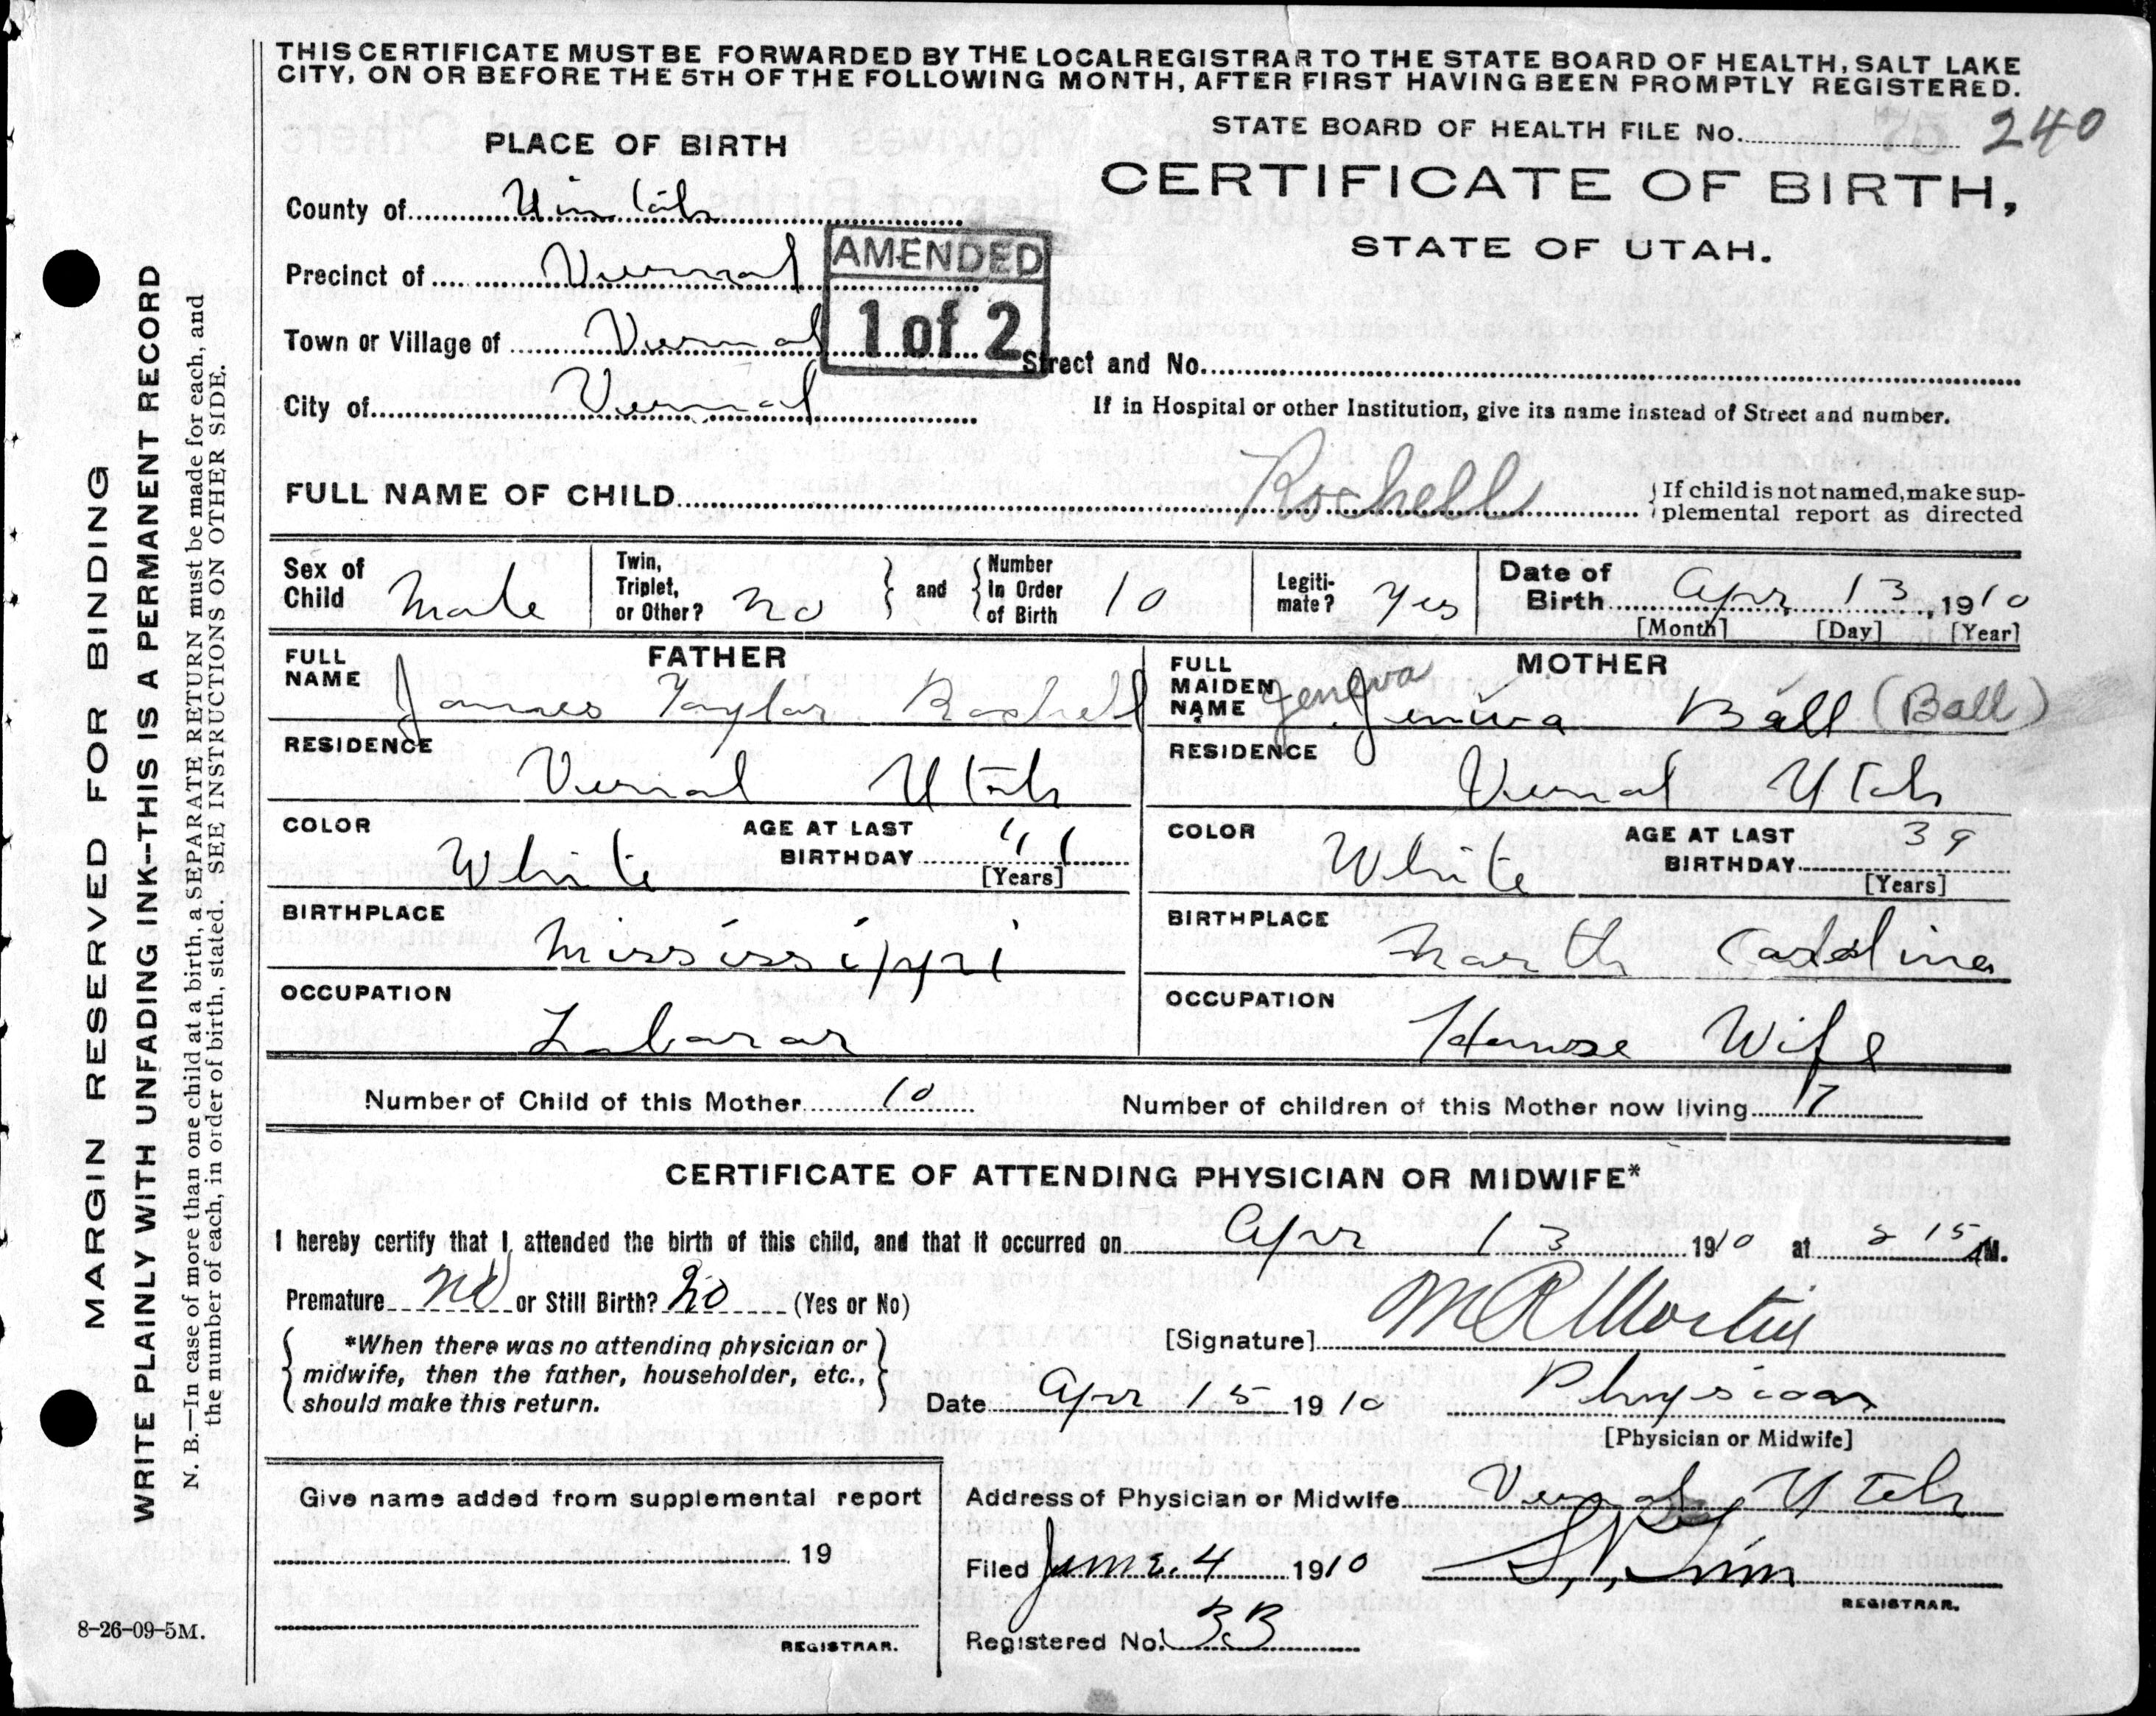 THIS CERTIFICATE MUST BE FORWARDED BY THE LOCAL REGISTRAR TO THE STATE BOARD OF HEALTH, SALT LAKE
CITY, ON OR BEFORE THE 5TH OF THE FOLLOWING MONTH, AFTER FIRST HAVING BEEN PROMPTLY REGISTERED.
STATE BOARD OF HEALTH FILE No. 240
PLACE OF BIRTH
CERTIFICATE OF BIRTH,
STATE OF UTAH.
County of Uintah
Precinct of Vernal
AMENDED
1 of 2
Town or Village of Vernal
Street and No.
City of Vernal
If in Hospital or other Institution, give its name instead of Street and number.
FULL NAME OF CHILD Rochell
If child is not named, make sup-
plemental report as directed
Sex of Child Male
Twin, Triplet, or Other? No
and Number In Order of Birth 10
Legiti-mate? Yes
Date of Birth Apr 13, 1910
[Month] [Day] [Year]
FATHER
FULL NAME James Taylor Rochell
MOTHER
FULL MAIDEN NAME Geneva Jeniva Ball (Ball)
RESIDENCE Vernal Utah
RESIDENCE Vernal Utah
COLOR White
AGE AT LAST BIRTHDAY 41
[Years]
COLOR White
AGE AT LAST BIRTHDAY 39
[Years]
BIRTHPLACE Mississippi
BIRTHPLACE North Carolina
OCCUPATION Labarar
OCCUPATION House Wife
Number of Child of this Mother 10
Number of children of this Mother now living 7
CERTIFICATE OF ATTENDING PHYSICIAN OR MIDWIFE*
I hereby certify that I attended the birth of this child, and that it occurred on Apr 13 1910 at 2 15 AM.
Premature No or Still Birth? No (Yes or No)
*When there was no attending physician or
midwife, then the father, householder, etc.,
should make this return.
[Signature]
Date Apr 15 1910
Physician
[Physician or Midwife]
Give name added from supplemental report
19
REGISTRAR.
Address of Physician or Midwife Vernal Utah
Filed June 4 1910
REGISTRAR.
Registered No. 33
MARGIN RESERVED FOR BINDING
WRITE PLAINLY WITH UNFADING INK--THIS IS A PERMANENT RECORD
N. B.—In case of more than one child at a birth, a SEPARATE RETURN must be made for each, and
the number of each, in order of birth, stated. SEE INSTRUCTIONS ON OTHER SIDE.
8-26-09-5M.